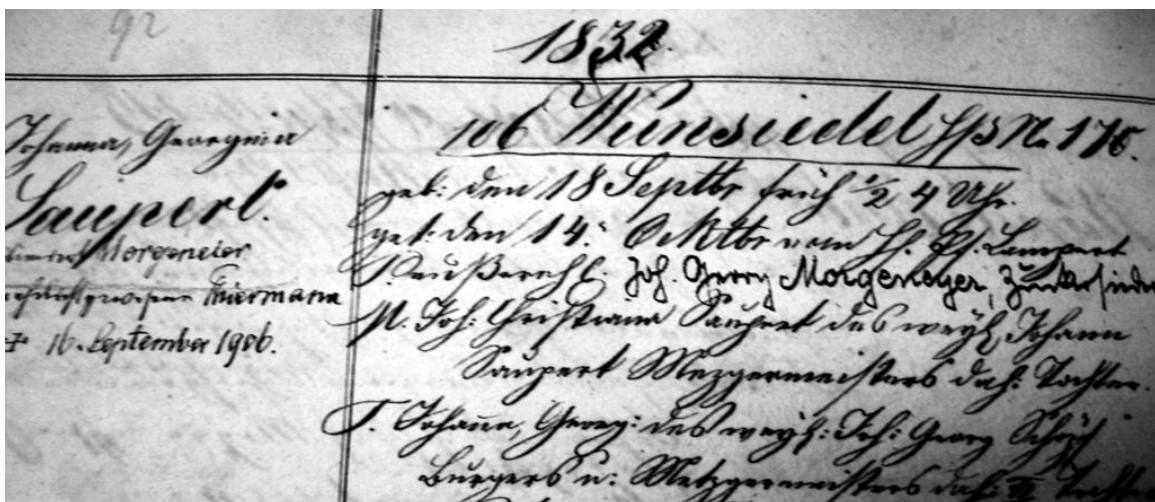 92
1832.
Johanna, Georgina
Saupert.
Morgeneier
Thiermann
† 16. September 1906.
106 Wunsiedel Hs No. 176.
geb: den 18 Septbr früh ½ 4 Uhr.
get: den 14. Oktbr vom H. Pf. Lampert
außerehl. Joh. Georg Morgeneyer, Zuckersieder
M. Joh: Christiana Saupert des weyl. Johann
Saupert Mezgermeisters das: Tochter.
T. Johann, Georg: des weyl: Joh: Georg
Burgers u: Metzgermeisters das: